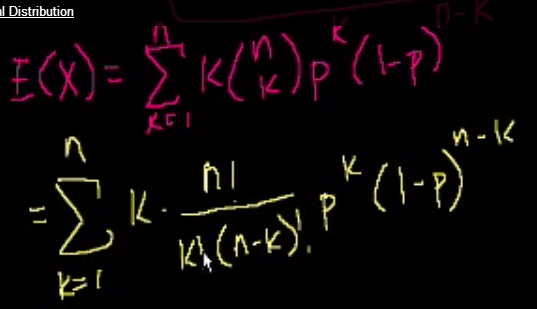 l Distribution
n-k
E(X) = ∑_{k=1}^{n} k (n k) p^k (1-p)
= ∑_{k=1}^{n} k · n! / k!(n-k)! p^k (1-p)^{n-k}